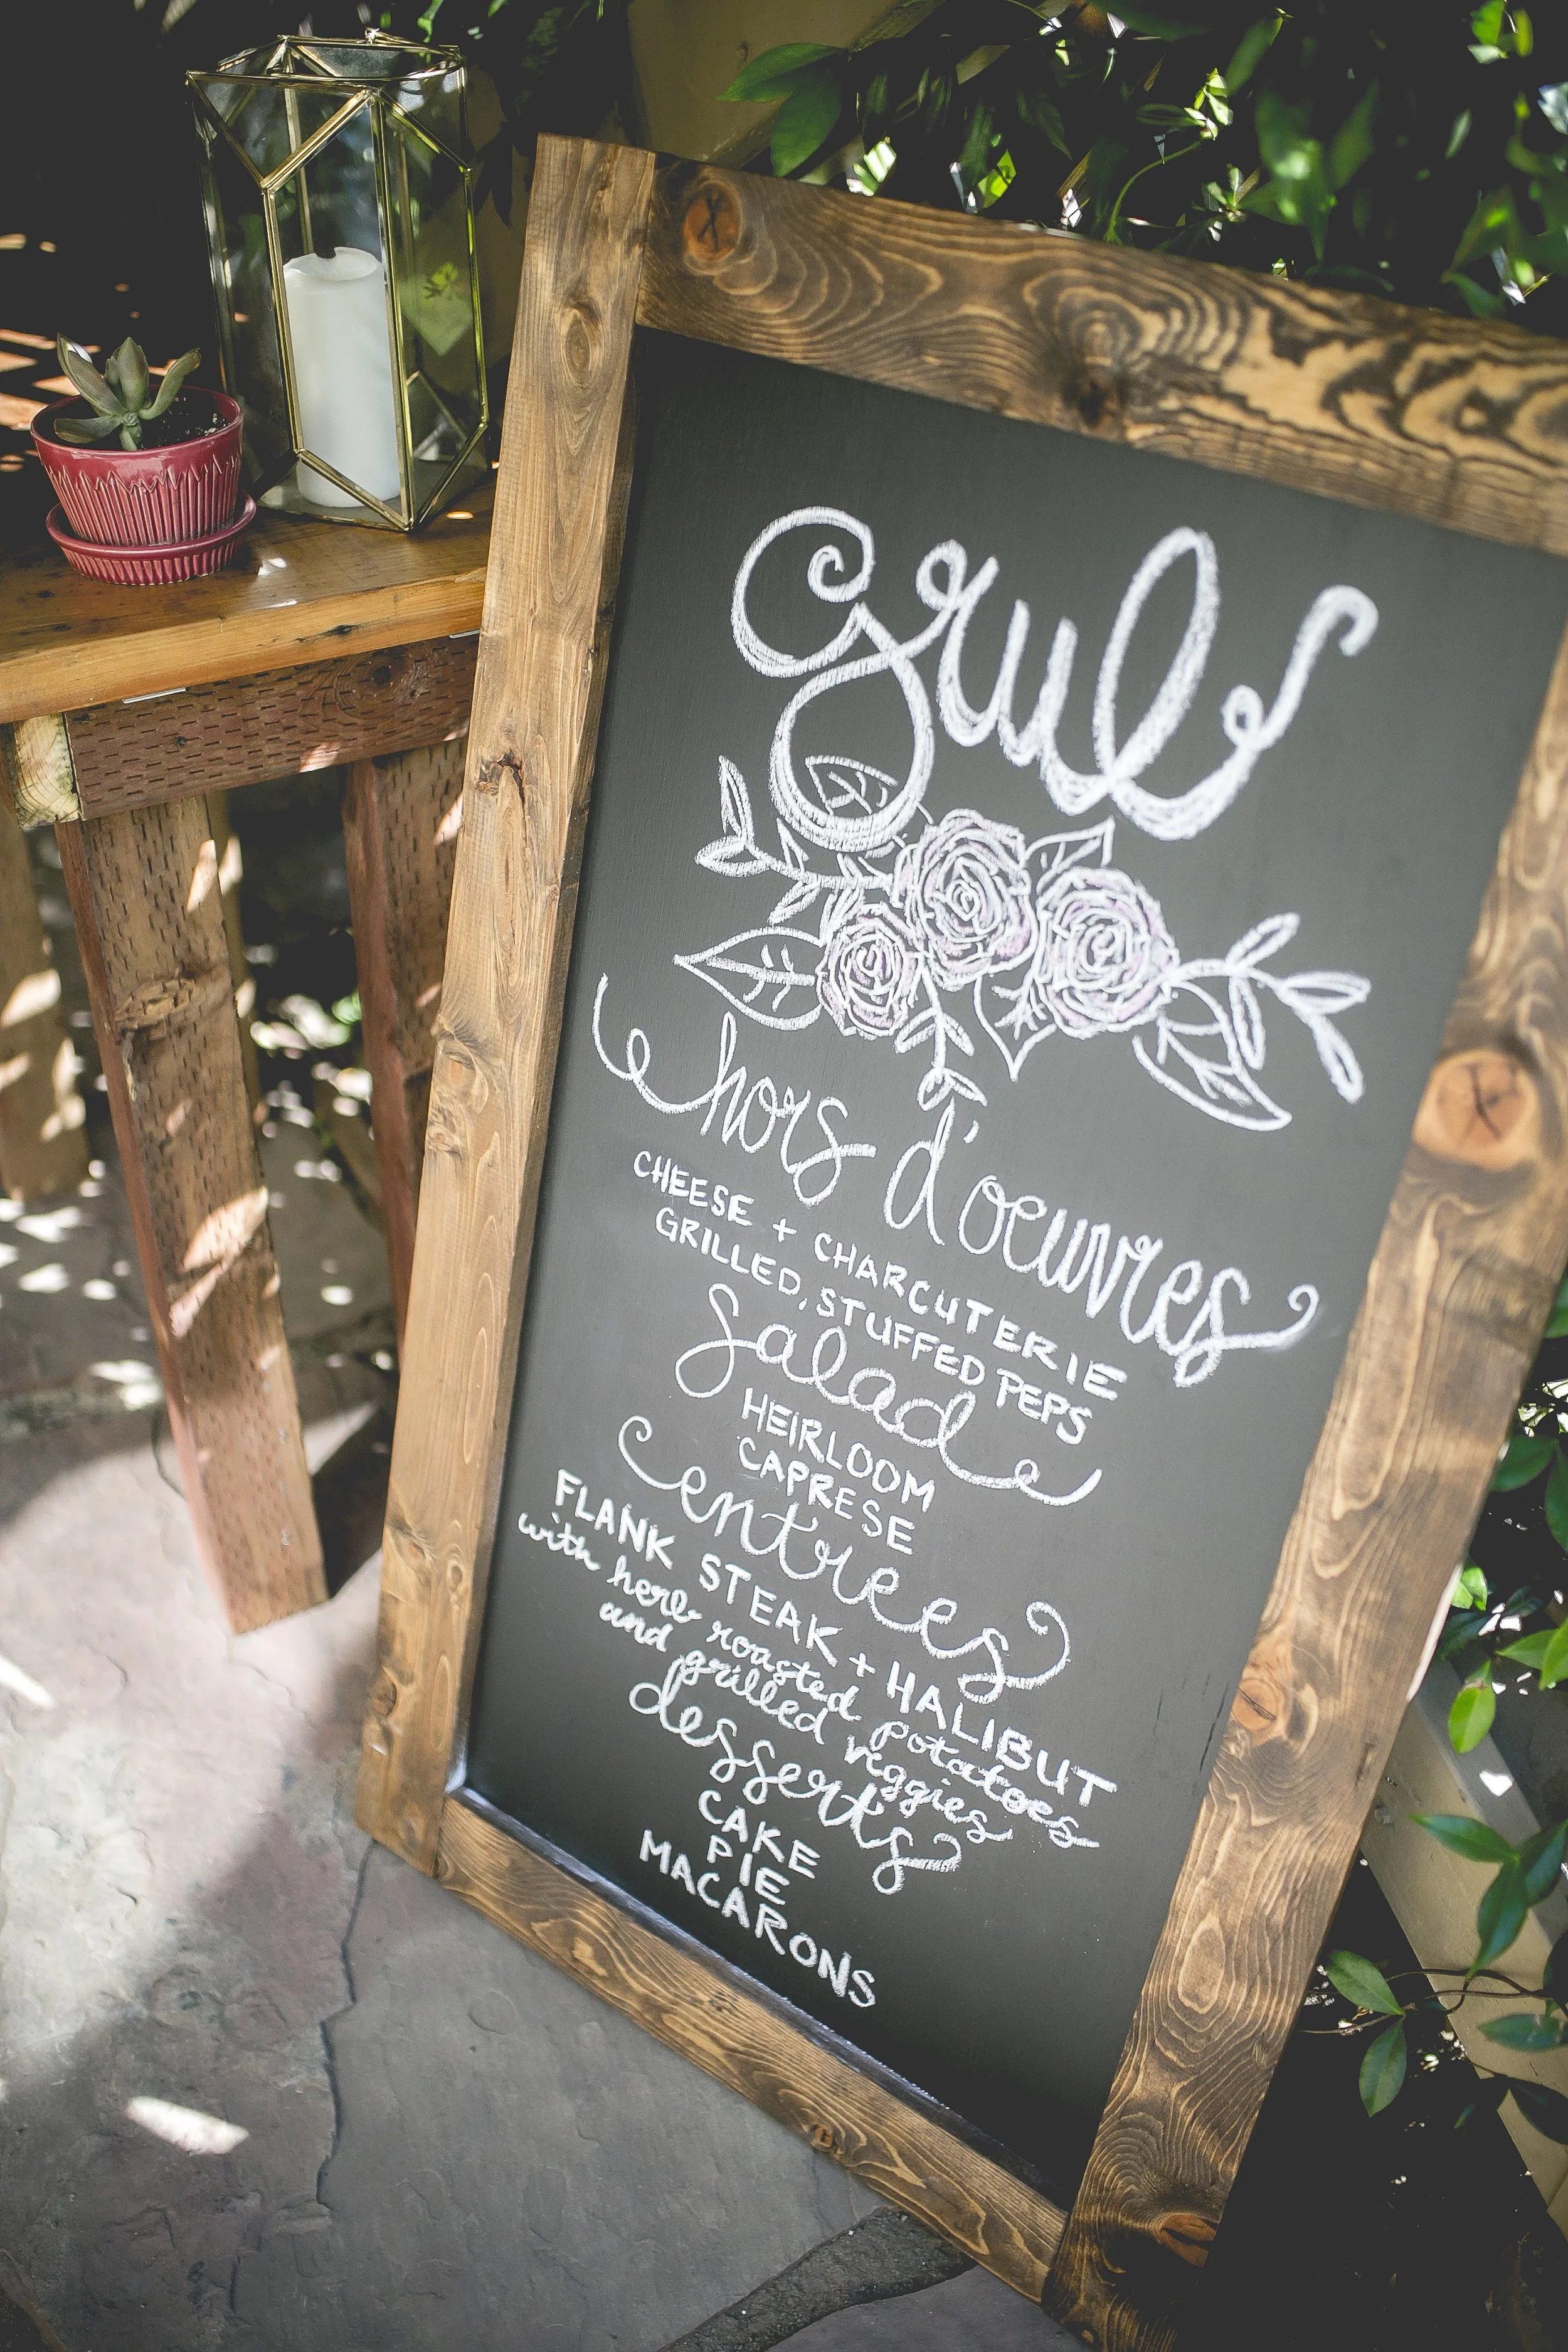 Grub
hors d'oeuvres
CHEESE + CHARCUTERIE
GRILLED, STUFFED PEPS
Salad
HEIRLOOM
CAPRESE
entrees
FLANK STEAK + HALIBUT
with herb roasted potatoes
and grilled veggies
desserts
CAKE
PIE
MACARONS